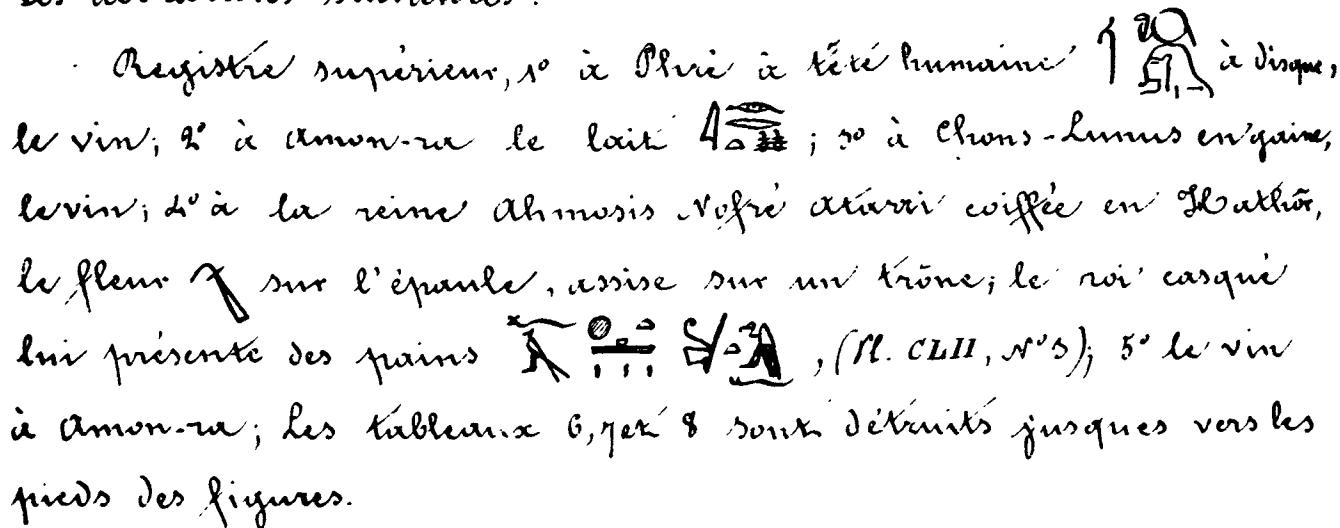 Registre supérieur, 1° à Phré à tête humaine à disque,
le vin; 2° à Amon-ra le lait ; 3° à Chons-Lunus en gaine,
le vin; 4° à la reine Ahmosis Nofré Atari coiffée en Hathôr,
le fleur sur l'épaule, assise sur un trône; le roi casqué
lui présente des pains , (Pl. CLII, N° 3); 5° le vin
à Amon-ra; Les tableaux 6, 7 et 8 sont détruits jusques vers les
pieds des figures.